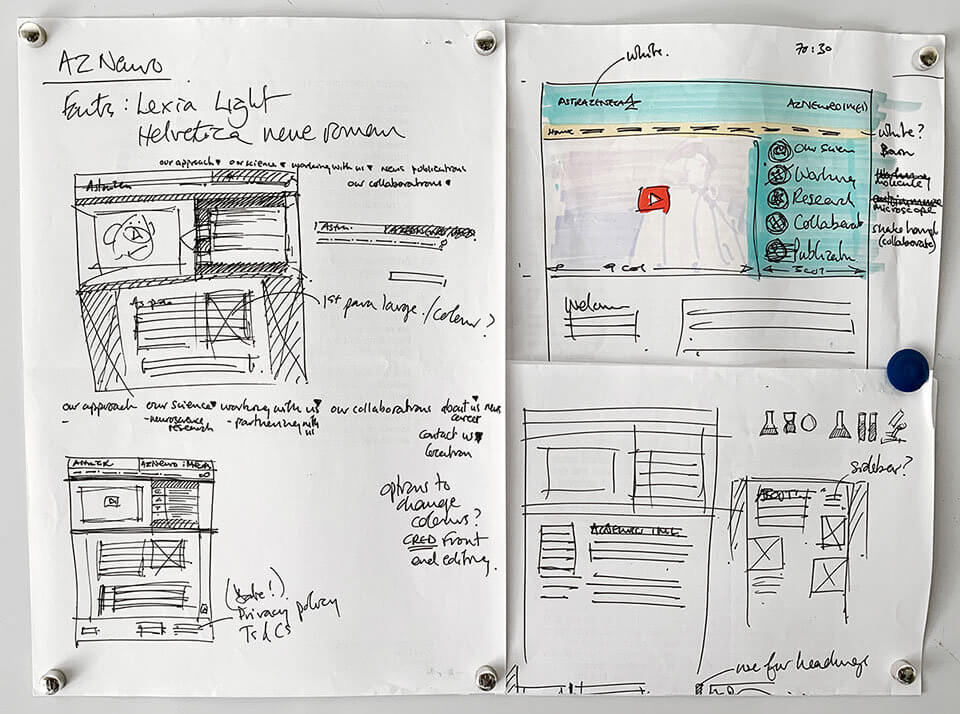 AZ Neuro
Fonts: Lexia Light
Helvetica neue roman
our approach our science working with us news publications
our collaborations
Astra
1st para large /colour?
our approach our science working with us our collaborations about us news
-neuroscience research
- partnering with us
career
contact us
location
AZ Neuro iMed
options to
change
colours?
CRED front
end editing.
Privacy policy
Ts & Cs
white.
70:30
ASTRAZENECA
AZ NEURO IMED
Home
white?
Our Scien
Working
Research
Collaborat
Publicatn
Brain
molecule
microscope
shake hands
(collaborate)
9 col
3 col
Welcome
sidebar?
ABOUT
use for headings